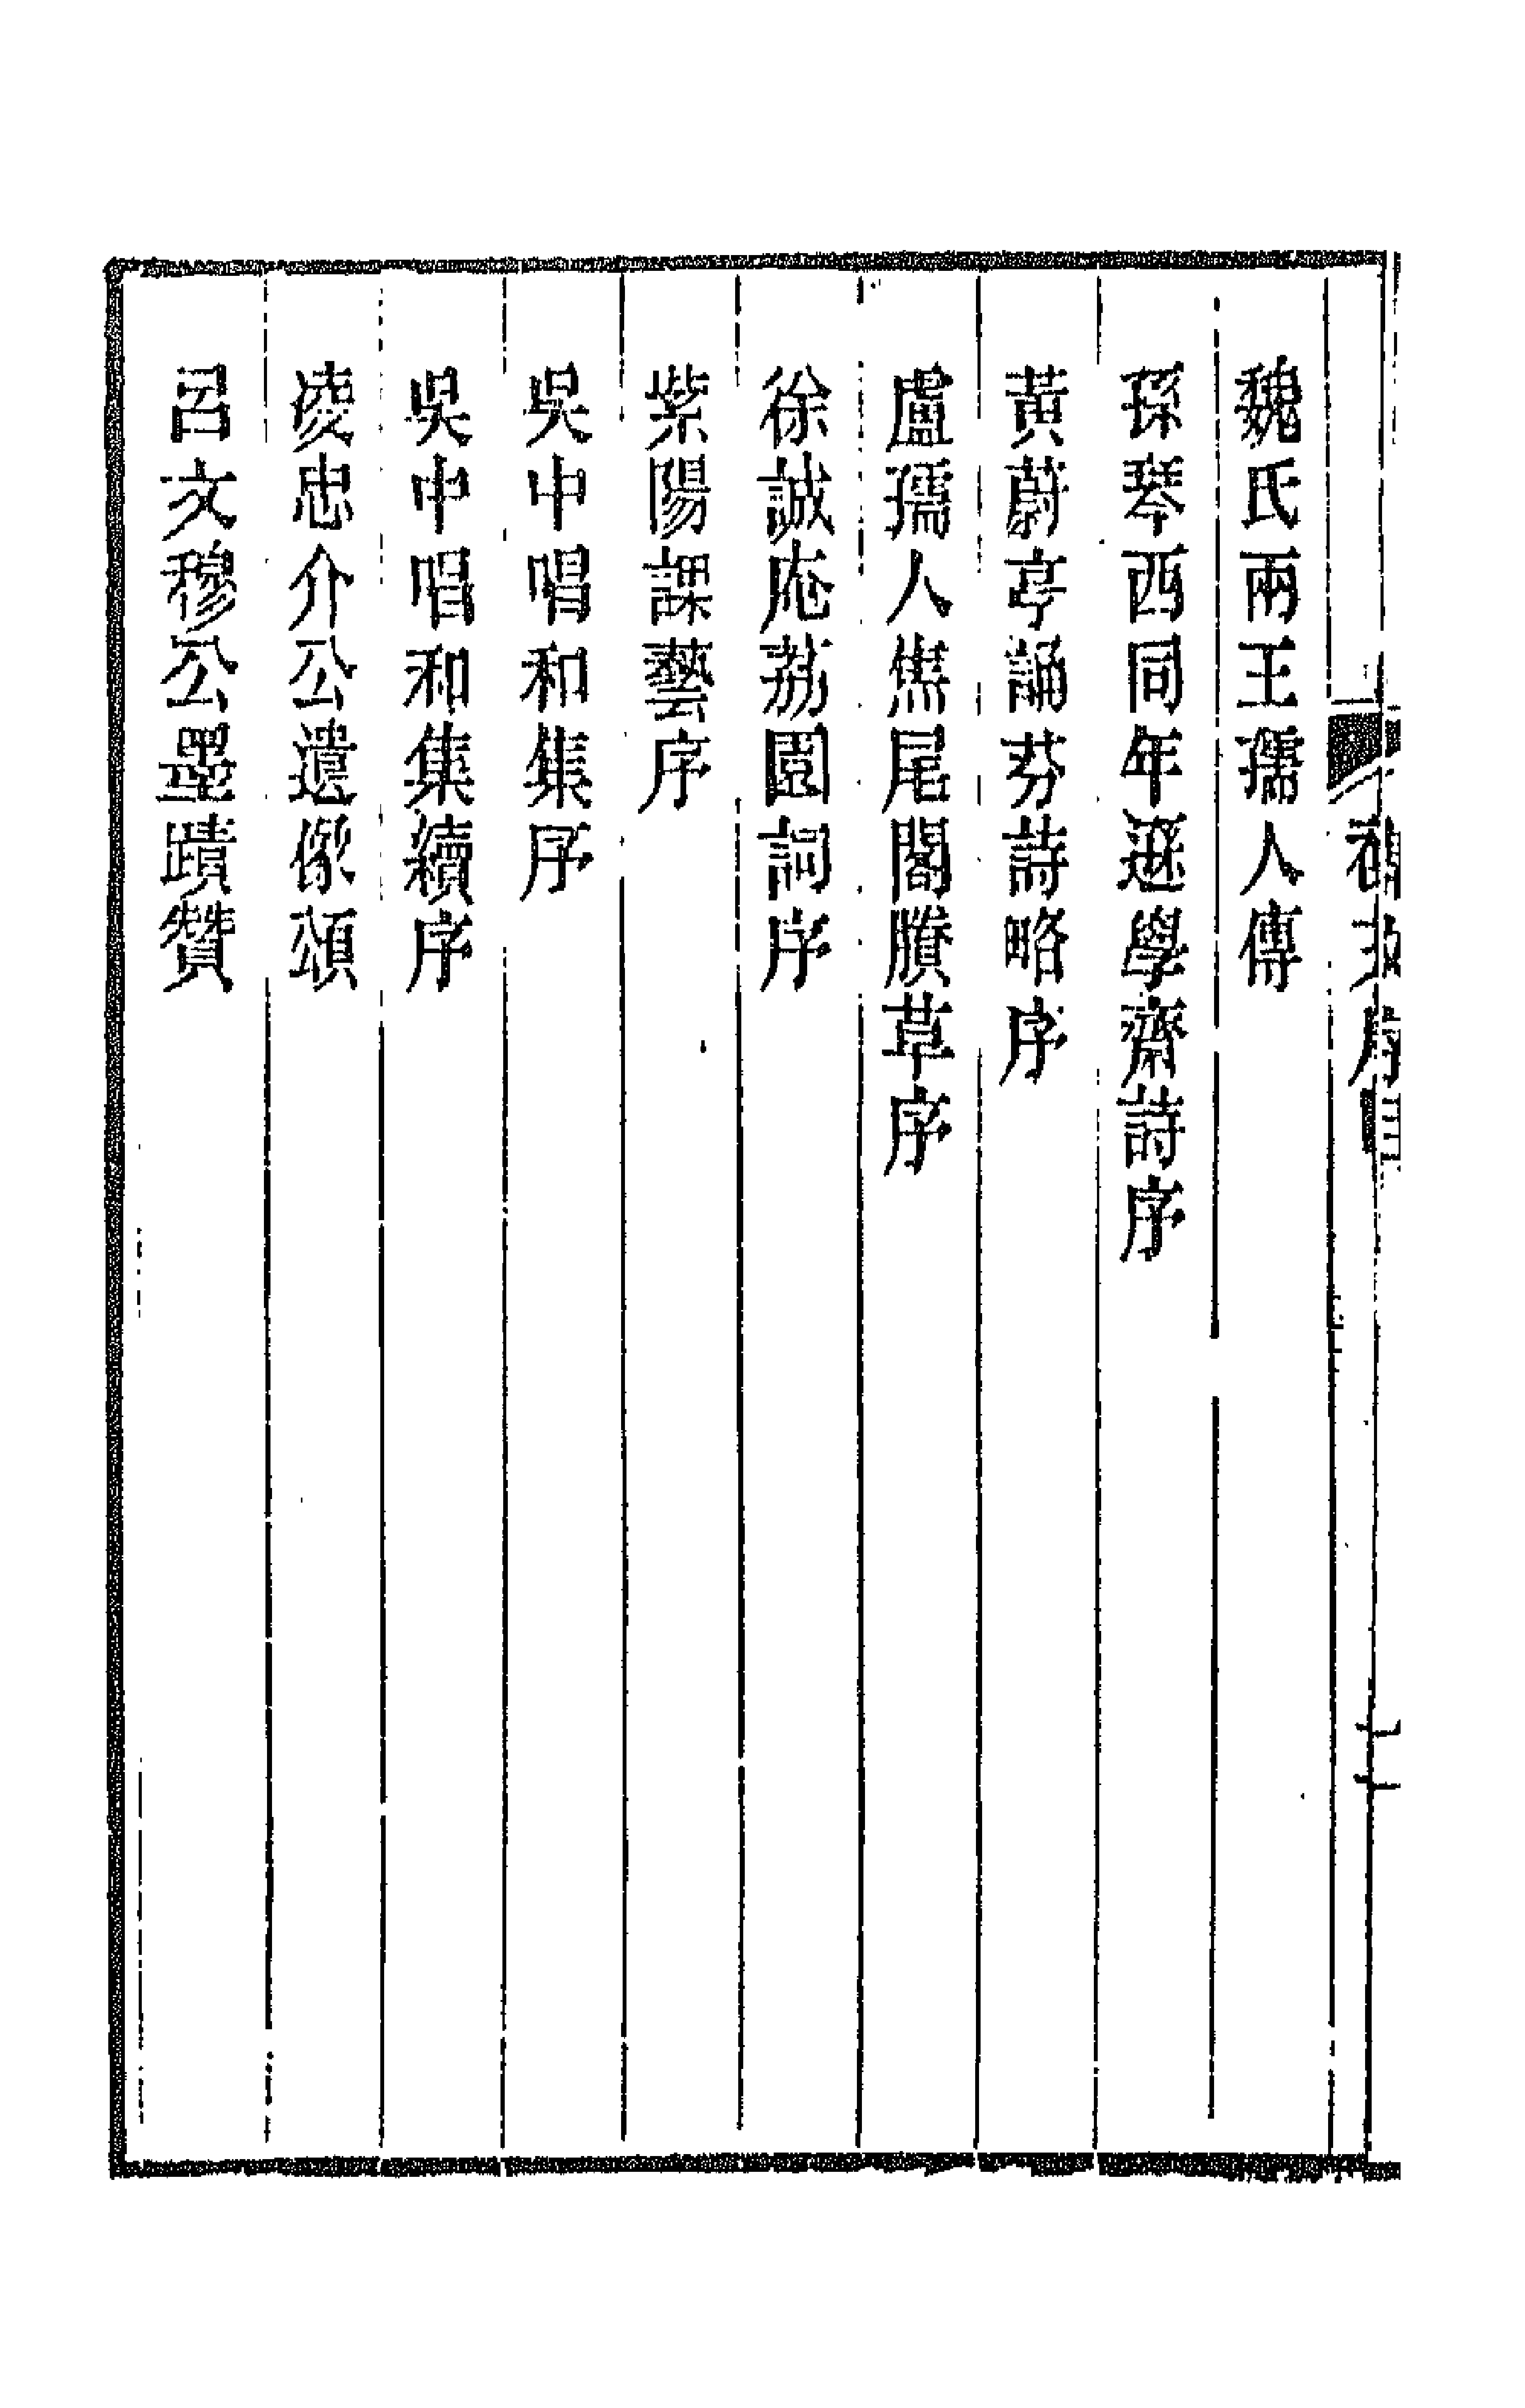 魏氏兩王孺人傳
孫琴西同年遜學齋詩序
黃蔚亭誦芬詩略序
盧孺人焦尾閣賸草序
徐誠庵荔園詞序
紫陽課藝序
吳中唱和集序
吳中唱和集續序
凌忠介公遺像頌
呂文穆公墨蹟贊